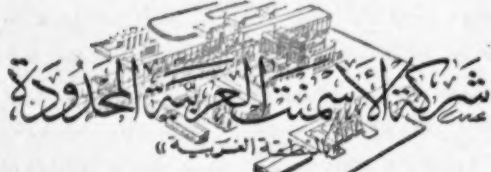 شركة الأسمنت العربية المحدودة
«المنطقة الغربية»